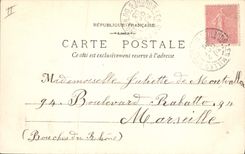 II
RÉPUBLIQUE FRANÇAISE
CARTE POSTALE
Ce côté est exclusivement réservé à l'adresse
Mademoiselle Juliette de Montvallon
94 Boulevard Rabatto 94
Marseille
(Bouches du Rhône)